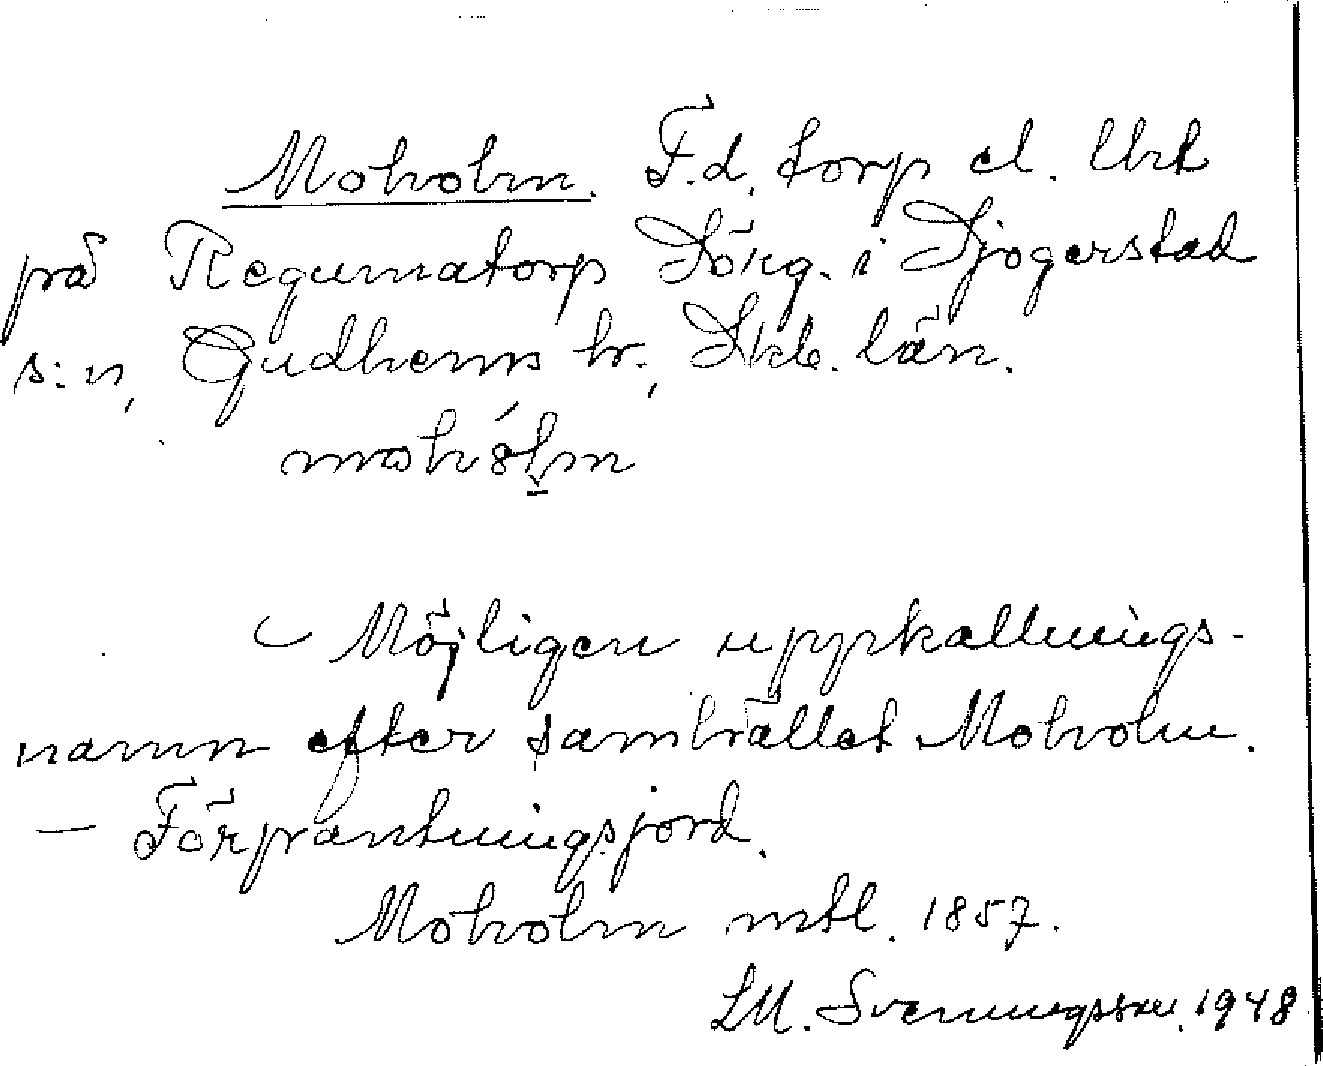 Moholm. F.d. torp el. lht
på Regumatorp Sörg. i Sjogerstad
s:n, Gudhems hr., Skb. län.
mohólm
Möjligen uppkallnings-
namn efter samhället Moholm.
— Förpantningsjord.
Moholm mtl. 1857.
LM. Svenungsson. 1948